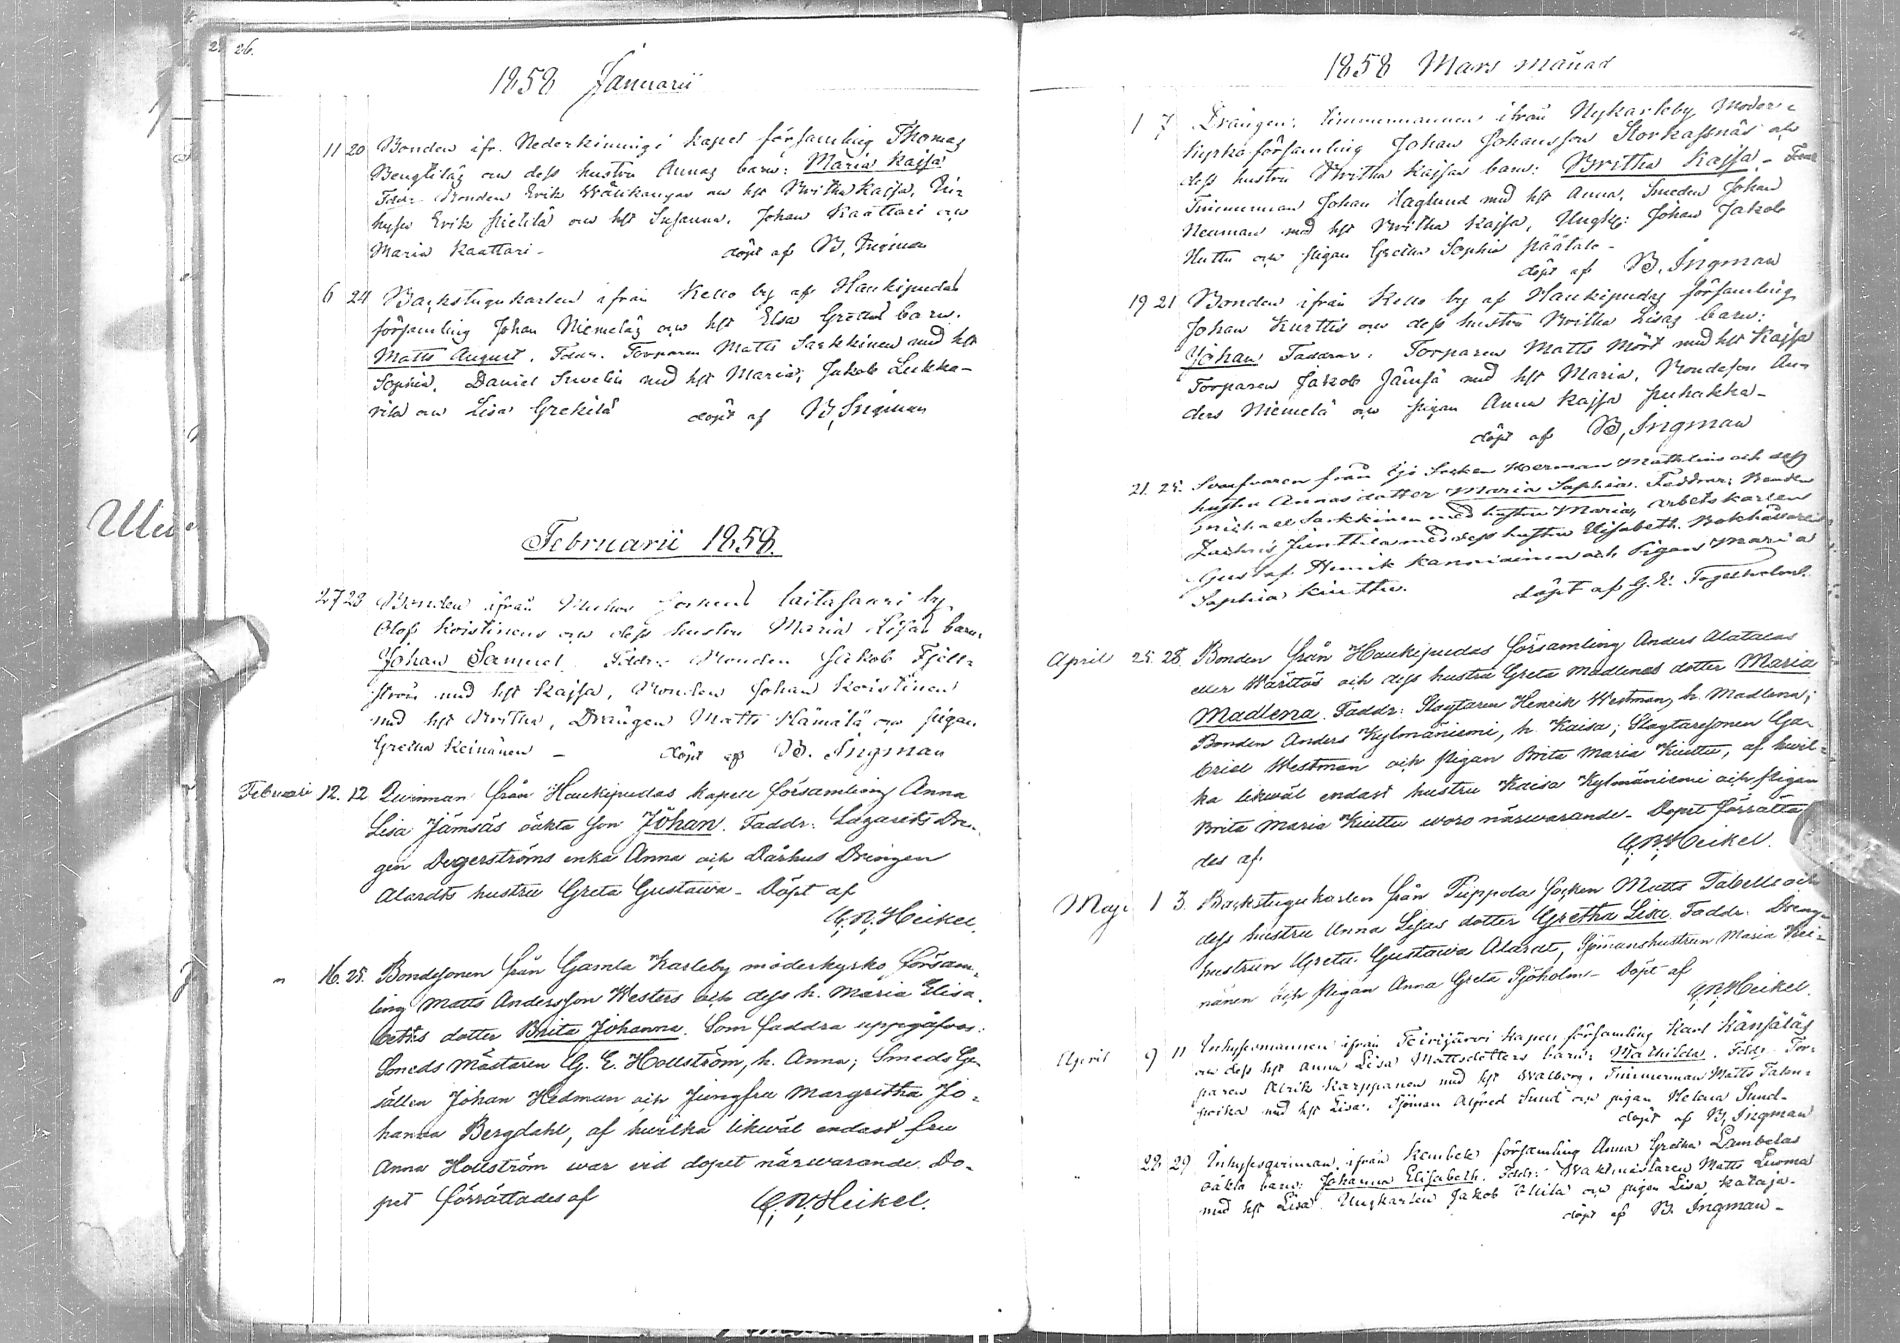 26.
1858 Januarii
11 20 Bonden ifr. Nederkimmingi kapel församling Thomas
Bengtiläs och dess hustru Annas barn: Maria Kajsa
Fddr. Bonden Erik och hst Britha Kajsa, In-
hyses Erik Hietilä och hst Susanna. Johan Kaattari och
Maria Kaattari - döpt af B. Ingman
6 24 Backstugukarlen ifrån Kello by af Haukipudas
församling Johan Niemeläs och hst Elsa Gretas barn.
Matts August. Fddr. Torparen Matts Sarkkinen med hst
Sophia, Daniel med hst Maria, Jakob Lukka-
rila och Lisa Grekilä döpt af B. Ingman
Februarii 1858.
27 23 Bonden ifrån Muhos sockens Laitasaari by
Olof Koistinens och dess hustru Maria Lisas barn
Johan Samuel. Fddr. Bonden Jakob Fjell-
ström med hst Kajsa, Bonden Johan Koistinen
med hst Britha, Drängen Matts Hämälä och pigan
Gretha Keinänen - döpt af B. Ingman
Februari 12. 12 Qvinnan från Haukipudas kapell församling Anna
Lisa Jämsäs oäkta son Johan. Faddr: Lazaretts Drä-
gen Degerströms enka Anna och Dårhus Drängen
Alardts hustru Greta Gustava - Döpt af
C. R. Heikel.
" 16. 25. Bondesonen från Gamla Karleby moderkyrko försam-
ling Matts Andersson Westers och dess h. Maria Elisa-
beths dotter Brita Johanna. Som faddra uppgåfvos:
Smeds Mästaren G. E. Hollström, h. Anna; Smeds Ge-
sällen Johan Hedman och Jungfru Margretha Jo-
hanna Bergdahl, af hwilka likwäl endast fru
Anna Hollström war vid dopet närwarande. Do-
pet förrättades af C. R. Heikel.
1858 Mars månad
1 7 Drängen, timmermannen ifrån Nykarleby Moder-
kyrko församling Johan Johansson Storkassnäs och
dess hustru Britha Kajsas barn: Britha Kajsa -
Timmerman Johan Haglund med hst Anna, Smeden Johan
Neuman med hst Britha Kajsa, Ungk: Johan Jakob
Huttu och pigan Gretha Sophia Päätalo -
döpt af B. Ingman
19 21 Bonden ifrån Kello by af Haukipudas församling
Johan Kurttis och dess hustru Britha Lisas barn:
Johan Faddrar. Torparen Matts Mört med hst Kajsa
Torparen Jakob Jämsä med hst Maria, Bondeson An-
ders Niemelä och pigan Anna Kajsa Puhakka -
döpt af B. Ingman
21. 25. från Ijo Socken Herman Mathlin och dess
hustru Annas dotter Maria Sophia. Faddrar: Bonden
Michael Sarkkinen med hustru Maria, arbetskarlen
Zachris Junttila med dess hustru Elisabeth. Bokhållaren
Gustaf Henrik Kanniainen och Pigan Maria
Sophia Kinttu. döpt af G. E.
April 25. 28. Bonden från Haukipudas församling Anders Alatalos
eller Wärttös och dess hustru Greta Madlenas dotter Maria
Madlena. Faddr: Slagtaren Henrik Westman, h. Madlena;
Bonden Anders Kylmäniemi, h. Kaisa; Slagtaresonen Ga-
briel Westman och pigan Brita Maria Kinttu, af hwil-
ka likwäl endast hustru Kaisa Kylmäniemi och pigan
Brita Maria Kinttu woro närwarande - Dopet förrätta
des af C. R. Heikel.
Maj 1 3. Backstugukarlen från Pippola socken Matts Tabells och
dess hustru Anna Lisas dotter Gretha Lisa. Faddr. Dreng-
hustrun Greta Gustava Alardt, Sjömanshustrun Maria Kei-
nänen och pigan Anna Greta Sjöholm - Döpt af
C. R. Heikel.
April 9 11 Inhysesmannen ifrån Teirijärvi kapell församling Karl Känsäläs
och dess hst Anna Lisa Mattsdotters barn: Mathilda. Fddr. Tor-
paren Ulrik Karppanen med hst Walborg. Timmerman Matts Talon-
poika med hst Lisa. Sjöman Alfred Sund och pigan Helena Sund -
döpt af B. Ingman
" 22 29 Inhysesqvinnan ifrån Kembele församling Anna Gretha Lambelas
oäkta barn: Johanna Elisabeth. Fddr: Waktmästaren Matts Luoma
med hst Lisa. Ungkarlen Jakob och pigan Lisa Kataja -
döpt af B. Ingman -